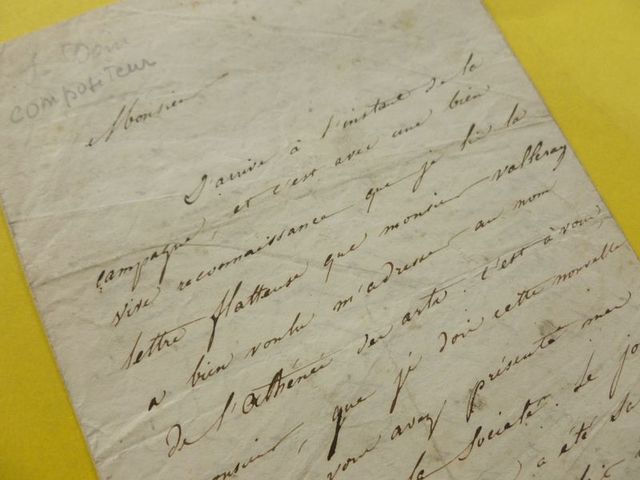 compositeur
Monsieur
J'arrive à l'instant de la
campagne, et c'est avec une bien
vive reconnaissance que je lis la
lettre flatteuse que monsieur Valleray
a bien voulu m'adresser au nom
de l'athénée des arts. C'est à vous,
monsieur, que je dois cette nouvelle
vous avez présenté mes
la Société. Le jo
a été